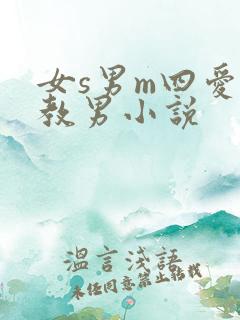 女s男m四爱
教男小说
温言浅語
未任同意禁止转载